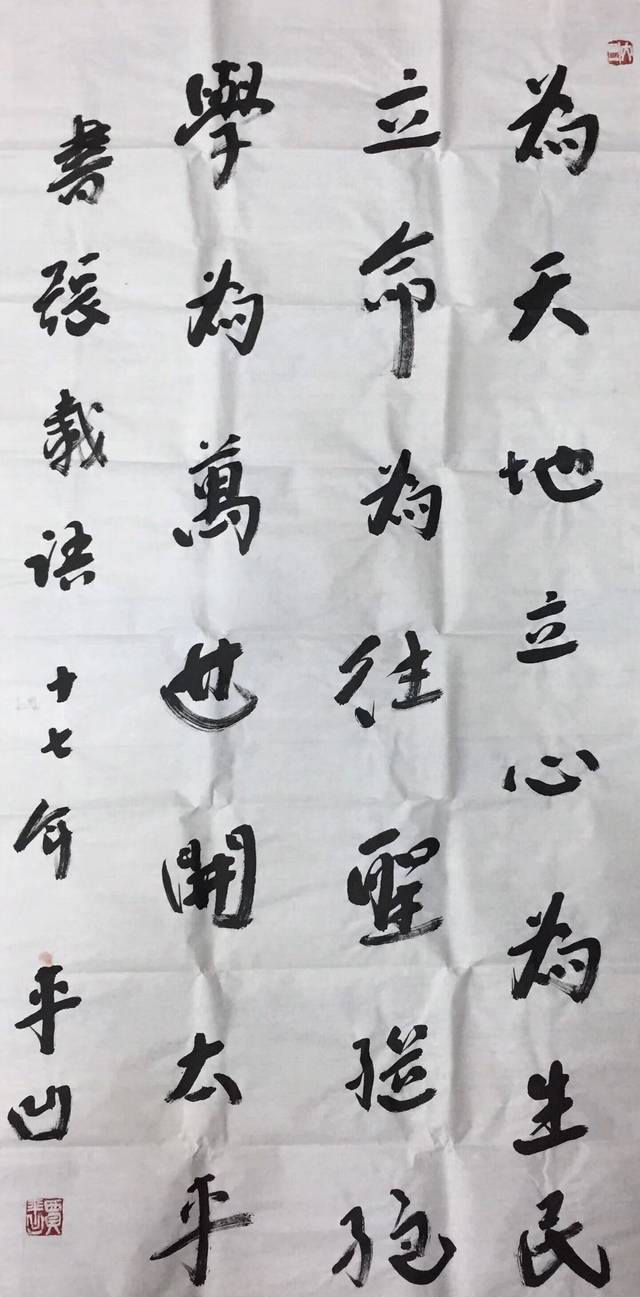 為天地立心為生民
立命為往聖继绝
學為萬世開太平
書張載語十七年平凹